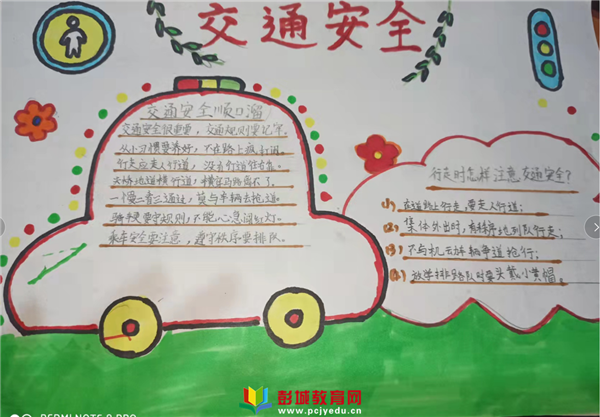 交通安全
交通安全顺口溜
交通安全很重要，交通规则要记牢，
从小习惯要养好，不在路上跑打闹，
行走应走人行道，没有行道往右靠。
天桥地道横行道，横穿马路离不了，
一慢二看三通过，莫与车辆去抢道。
骑车更要守规则，不能心急闯红灯。
乘车安全要注意，遵守秩序要排队。
行走时怎样注意交通安全？
(1) 在道路上行走，要走人行道；
(2) 集体外出时，有秩序地列队行走；
(3) 不与机动车辆争道抢行；
(4) 放学排路队时要头戴小黄帽。
彭城教育网
www.pcjyedu.cn
REDMI NOTE 8 PRO